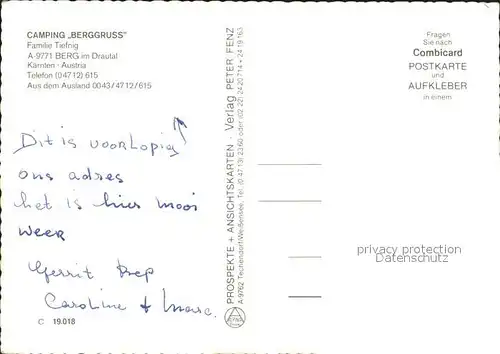 CAMPING „BERGGRUSS"
Familie Tiefnig
A-9771 BERG im Drautal
Kärnten - Austria
Telefon (04712) 615
Aus dem Ausland 0043/4712/615
Dit is voorlopig
ons adres
het is hier mooi
weer
Gerrit Bep
Caroline + Marc.
C 19.018
PROSPEKTE + ANSICHTSKARTEN · Verlag PETER FENZ
A-9762 Techendorf/Weißensee, Tel. (0 47 13) 23 60 oder (02 22) 24 20 714 + 24 19 163
Fragen
Sie nach
Combicard
POSTKARTE
und
AUFKLEBER
in einem
privacy protection
Datenschutz